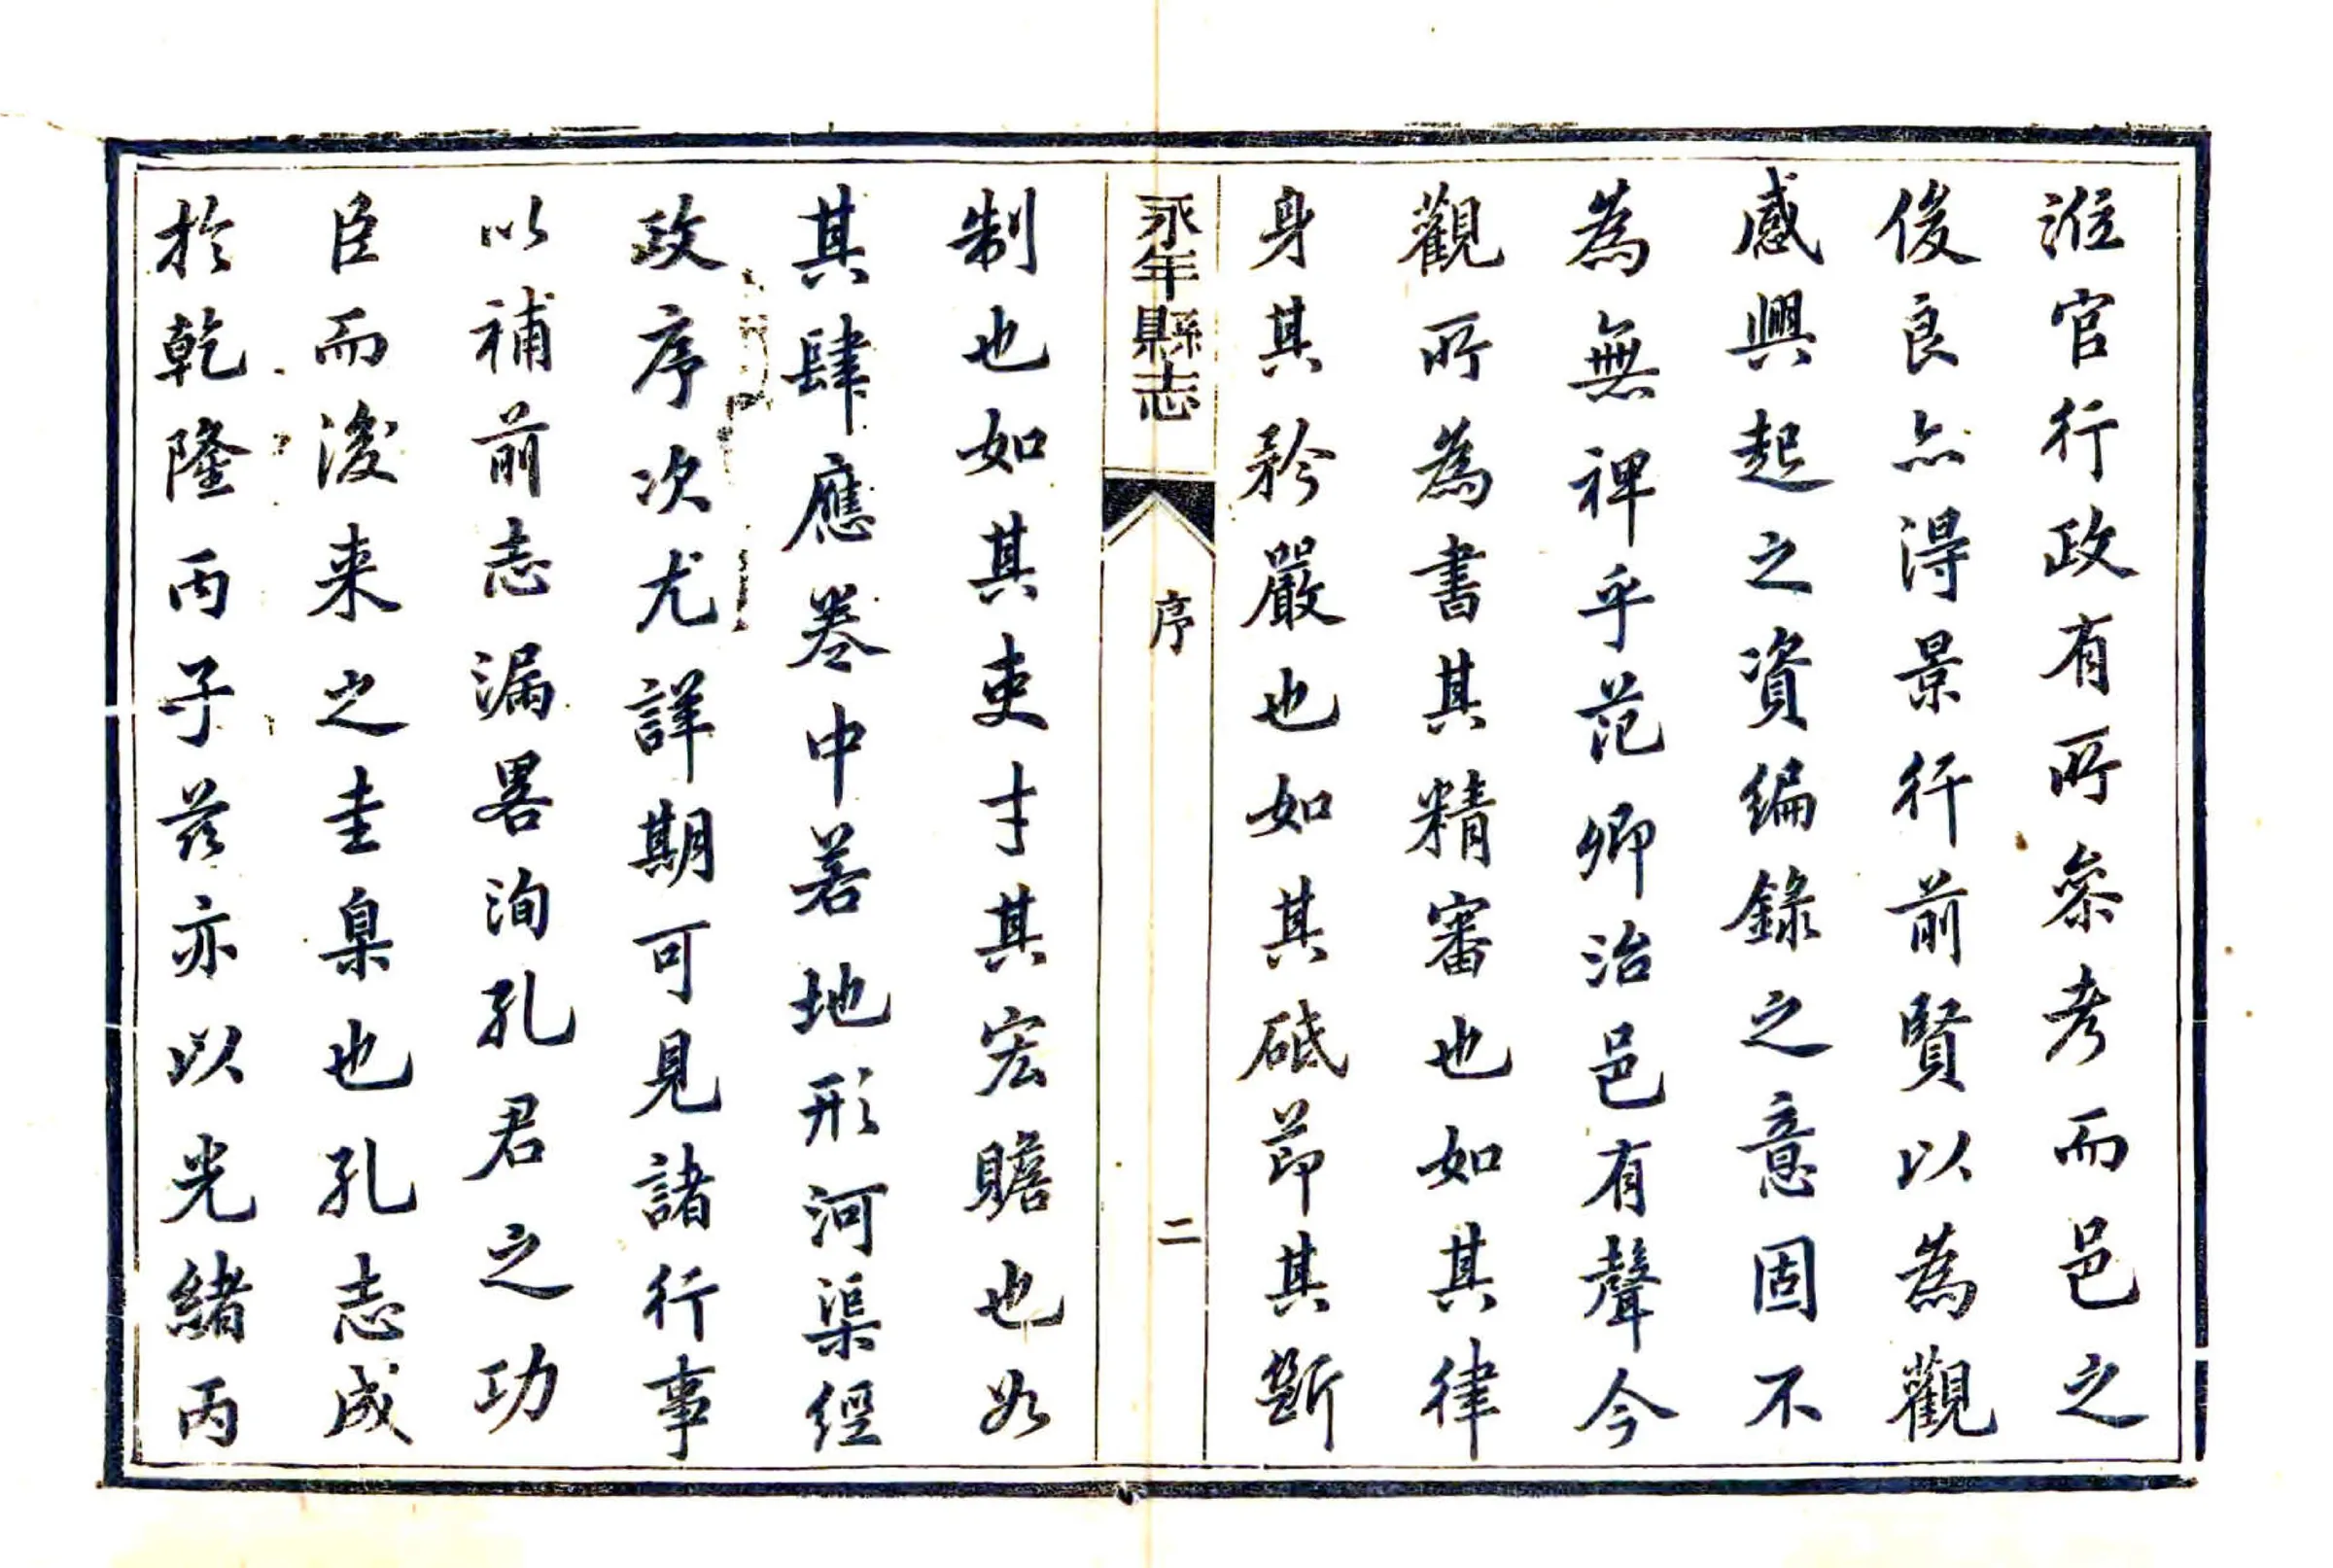 涖官行政有所叅考而邑之
俊良亦得景行前賢以為觀
感興起之資編錄之意固不
為無裨乎范卿治邑有聲今
觀所為書其精審也如其律
身其矜嚴也如其砥節其斷
永年縣志 序 二
制也如其吏才其宏贍也如
其肆應卷中若地形河渠經
政序次尤詳期可見諸行事
以補前志漏畧洵孔君之功
臣而後来之圭臬也孔志成
於乾隆丙子茲亦以光緒丙